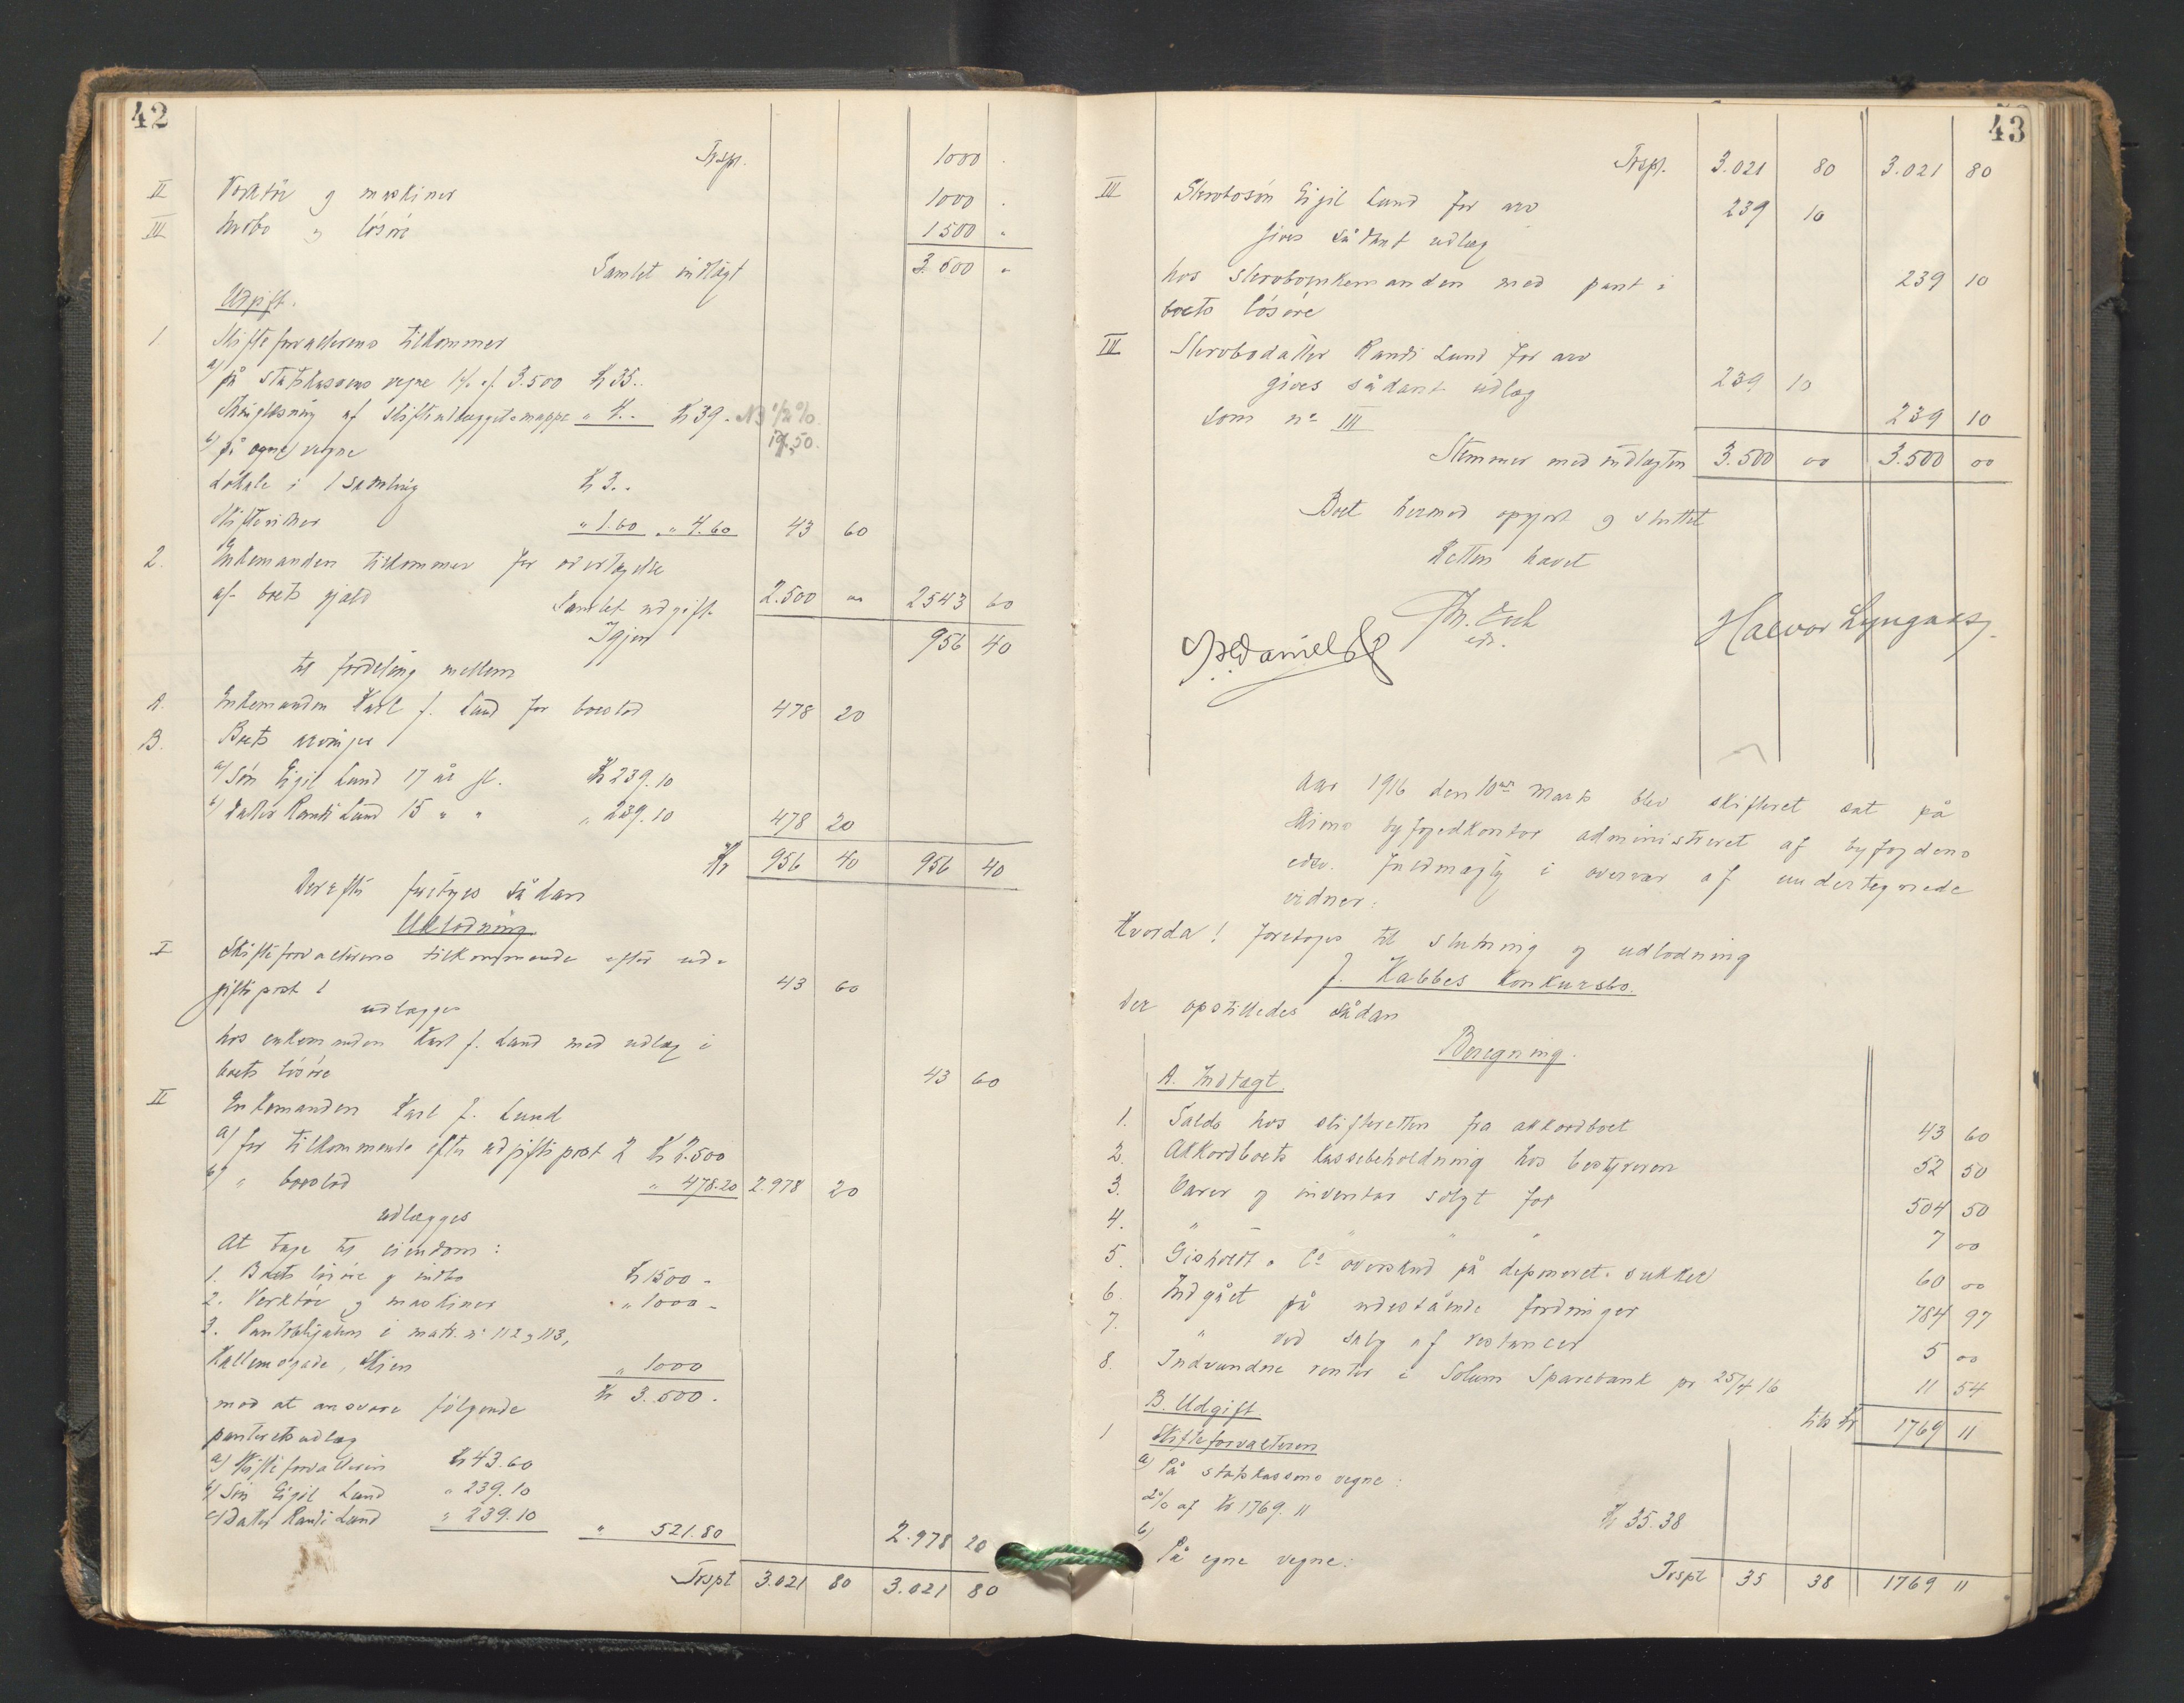 42
Trspt. 1000 .
II Værktöi og maskiner 1000 .
III Indbo og lösöre 1500 "
Samlet indtægt 3.500 "
Udgift.
1 Skifteforvalterens tilkommer
a) på statskassens vegne 1% af 3.500 Kr 35..
Skriglæsning af skifteudlægget " 4.. Kr 39. N3 1/2 %
19.50.
b) på egne vegne
Lokale i 1 samling Kr 3..
Skiftevidner " 1.60 " 4.60 43 60
2. Enkemanden tilkommer for overtagelse
af boets gjæld 2.500 oo 2543 60
Samlet udgift
Igjen 956 40
til fordeling mellem
A. Enkemanden Karl J. Lund for boeslod 478 20
B. Boets arvinger
a) Sön Eigil Lund 17 år gl. Kr 239.10
b) Datter Randi Lund 15 " " " 239.10 478 20
Kr 956 40 956 40
Derefter foretoges sådan
Udlodning
I Skifteforvalterens tilkommende efter ud-
giftspost 1 43 60
udlægges
hos enkemanden Karl J. Lund med udlæg i
boets lösöre 43 60
II Enkemanden Karl J. Lund
a) for tilkommende efter udgiftspost 2 Kr 2.500
b) " boeslod " 478.20 2.978 20
udlægges
At tage til eiendom:
1. Boets lösöre og indbo Kr 1500 -
2. Verktöi og maskiner " 1000 -
3. Pantobligation i matr. nr 112 og 113,
Kallemsgade, Skien " 1000
Kr 3.500.
mod at ansvare fölgende
panteretsudlæg
a) Skifteforvalteren Kr 43.60
b) Sön Eigil Lund " 239.10
c) Datter Randi Lund " 239.10 " 521.80 2.978 20
Trspt 3.021 80 3.021 80
43
Trspt. 3.021 80 3.021 80
III Stervbosön Eigil Lund for arv 239 10
gives sådant udlæg
hos stervboenkemanden med pant i 239 10
boets lösöre
IV Stervbodatter Randi Lund for arv
gives sådant udlæg 239 10
som nr III 239 10
Stemmer med indtægten 3.500 oo 3.500 oo
Boet hermed opgjort og sluttet
Retten hævet
Halvor Lyngaas
Aar 1916 den 10de Marts blev skifteret sat på
Skiens byfogedkontor administreret af byfogdens
edsv. fuldmægtig i overvær af undertegnede
vidner:
Hvorda! foretoges til slutning og udlodning
J. Kabbes Konkursbo.
Der opstilledes sådan
Beregning.
A. Indtægt
1. Saldo hos skifteretten fra akkordboet 43 60
2. Akkordboets kassebeholdning hos bestyreren 52 50
3. Varer og inventar solgt for 504 50
4. " - " " 7 oo
5. Gisholdt & Co overskud på deponeret sukker 60 oo
6. Indgået på udestående fordringer 784 97
7. " ved salg af restancer 5 oo
8. Indvundne renter i Solum Sparebank pr 25/4 16 11 54
tils Kr 1769 11
B. Udgift
1 Skifteforvalteren
a) På statskassens vegne:
2% af Kr 1769.11 Kr 35.38
b) På egne vegne:
Trspt 35 38 1769 11